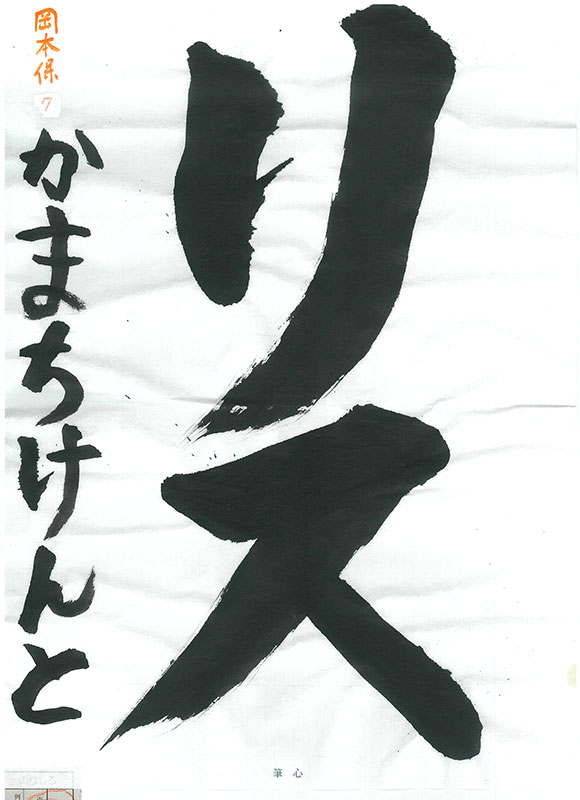 リス
岡本保
7
かまちけんと
筆心